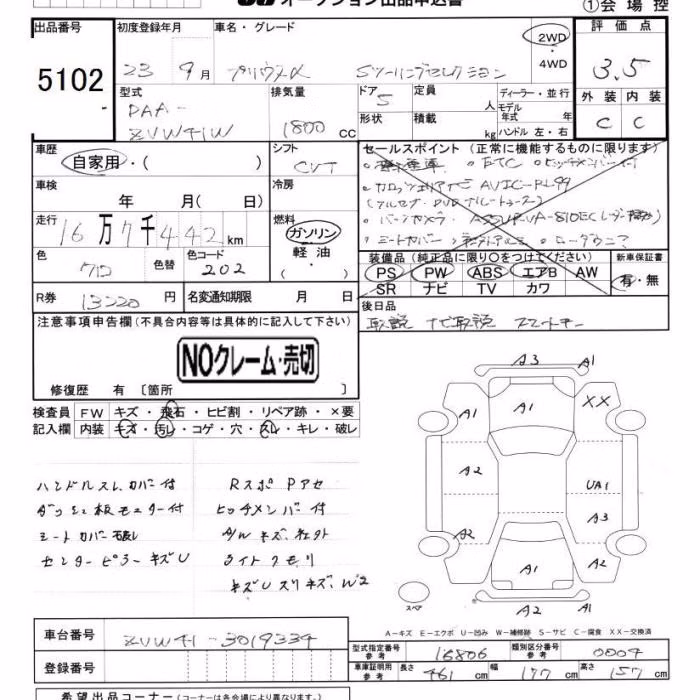 オークション出品申込書
①会場控
出品番号
5102
初度登録年月
23 9月
車名・グレード
プリウスα Sツーリングセレクション
2WD
4WD
評価点
3.5
型式
DAA-
ZVW41W
排気量
1800 CC
ドア
5
形状
定員
人
積載
kg
ディーラー・並行
モデル
年式 年
ハンドル 左・右
外装 内装
C C
車歴
自家用・( )
シフト
CVT
セールスポイント (正常に機能するものに限ります)
・ETC ・ヒッチメンバー付
AVIC-RL99
・バックカメラ
・シートカバー
車検
年 月( 日)
冷房
走行
16万7千442km
燃料
ガソリン
軽油
( )
色
クロ
色替
色コード
202
装備品 (純正品に限り○をつけてください)
PS PW ABS エアB AW
SR ナビ TV カワ
新車保証書
有・無
R券 13220 円
名変通知期限 月 日
後日品
取説 ナビ取説 スマートキー
注意事項申告欄 (不具合内容等は具体的に記入して下さい)
NOクレーム・売切
修復歴 有 〔箇所 〕
検査員 FW キズ・飛石・ヒビ割・リペア跡・×要
記入欄 内装 キズ・汚レ・コゲ・穴・スレ・キレ・破レ
ハンドルスレ、カバー付
ダッシュ板モニター付
シートカバー破レ
センターピラーキズU
Rスポ Pアセ
ヒッチメンバー付
A/Wキズ、
ライトクモリ
キズUスリキズ、W2
A3 A1
A1 A1 XX
A2 UA1
A3
A2 A2
A1
A2 A1
スペア
A-キズ E-エクボ U-凹み W-補修跡 S-サビ C-腐食 XX-交換済
車台番号
ZVW41-3019334
登録番号
型式指定番号
参考
16806
類別区分番号
参考
0004
車庫証明用
参考
長さ 461 cm 幅 177 cm 高さ 157 cm
希望出品コーナー (コーナーは各会場により異なります。)